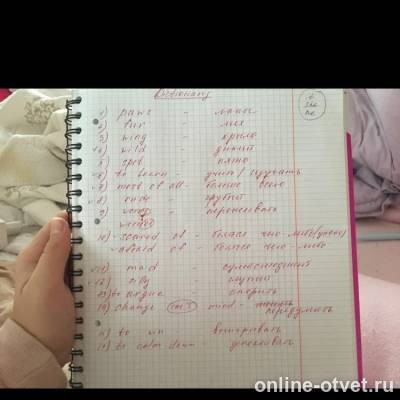 Dictionary
it
she
he
1) paws - лапы
2) fur - мех
3) wing - крыло
4) wild - дикий
5) spot - пятно
6) to learn - учить / изучать
7) most of all - больше всего
8) rude - грубый
9) - переживать
10) scared of - бояться чего-либо
afraid of - бояться чего-либо
11) mad - сумасшедший
12) silly - глупый
13) to argue - спорить
14) change mind - передумать
15) to win - выигрывать
16) to calm down - успокоить
online-otvet.ru